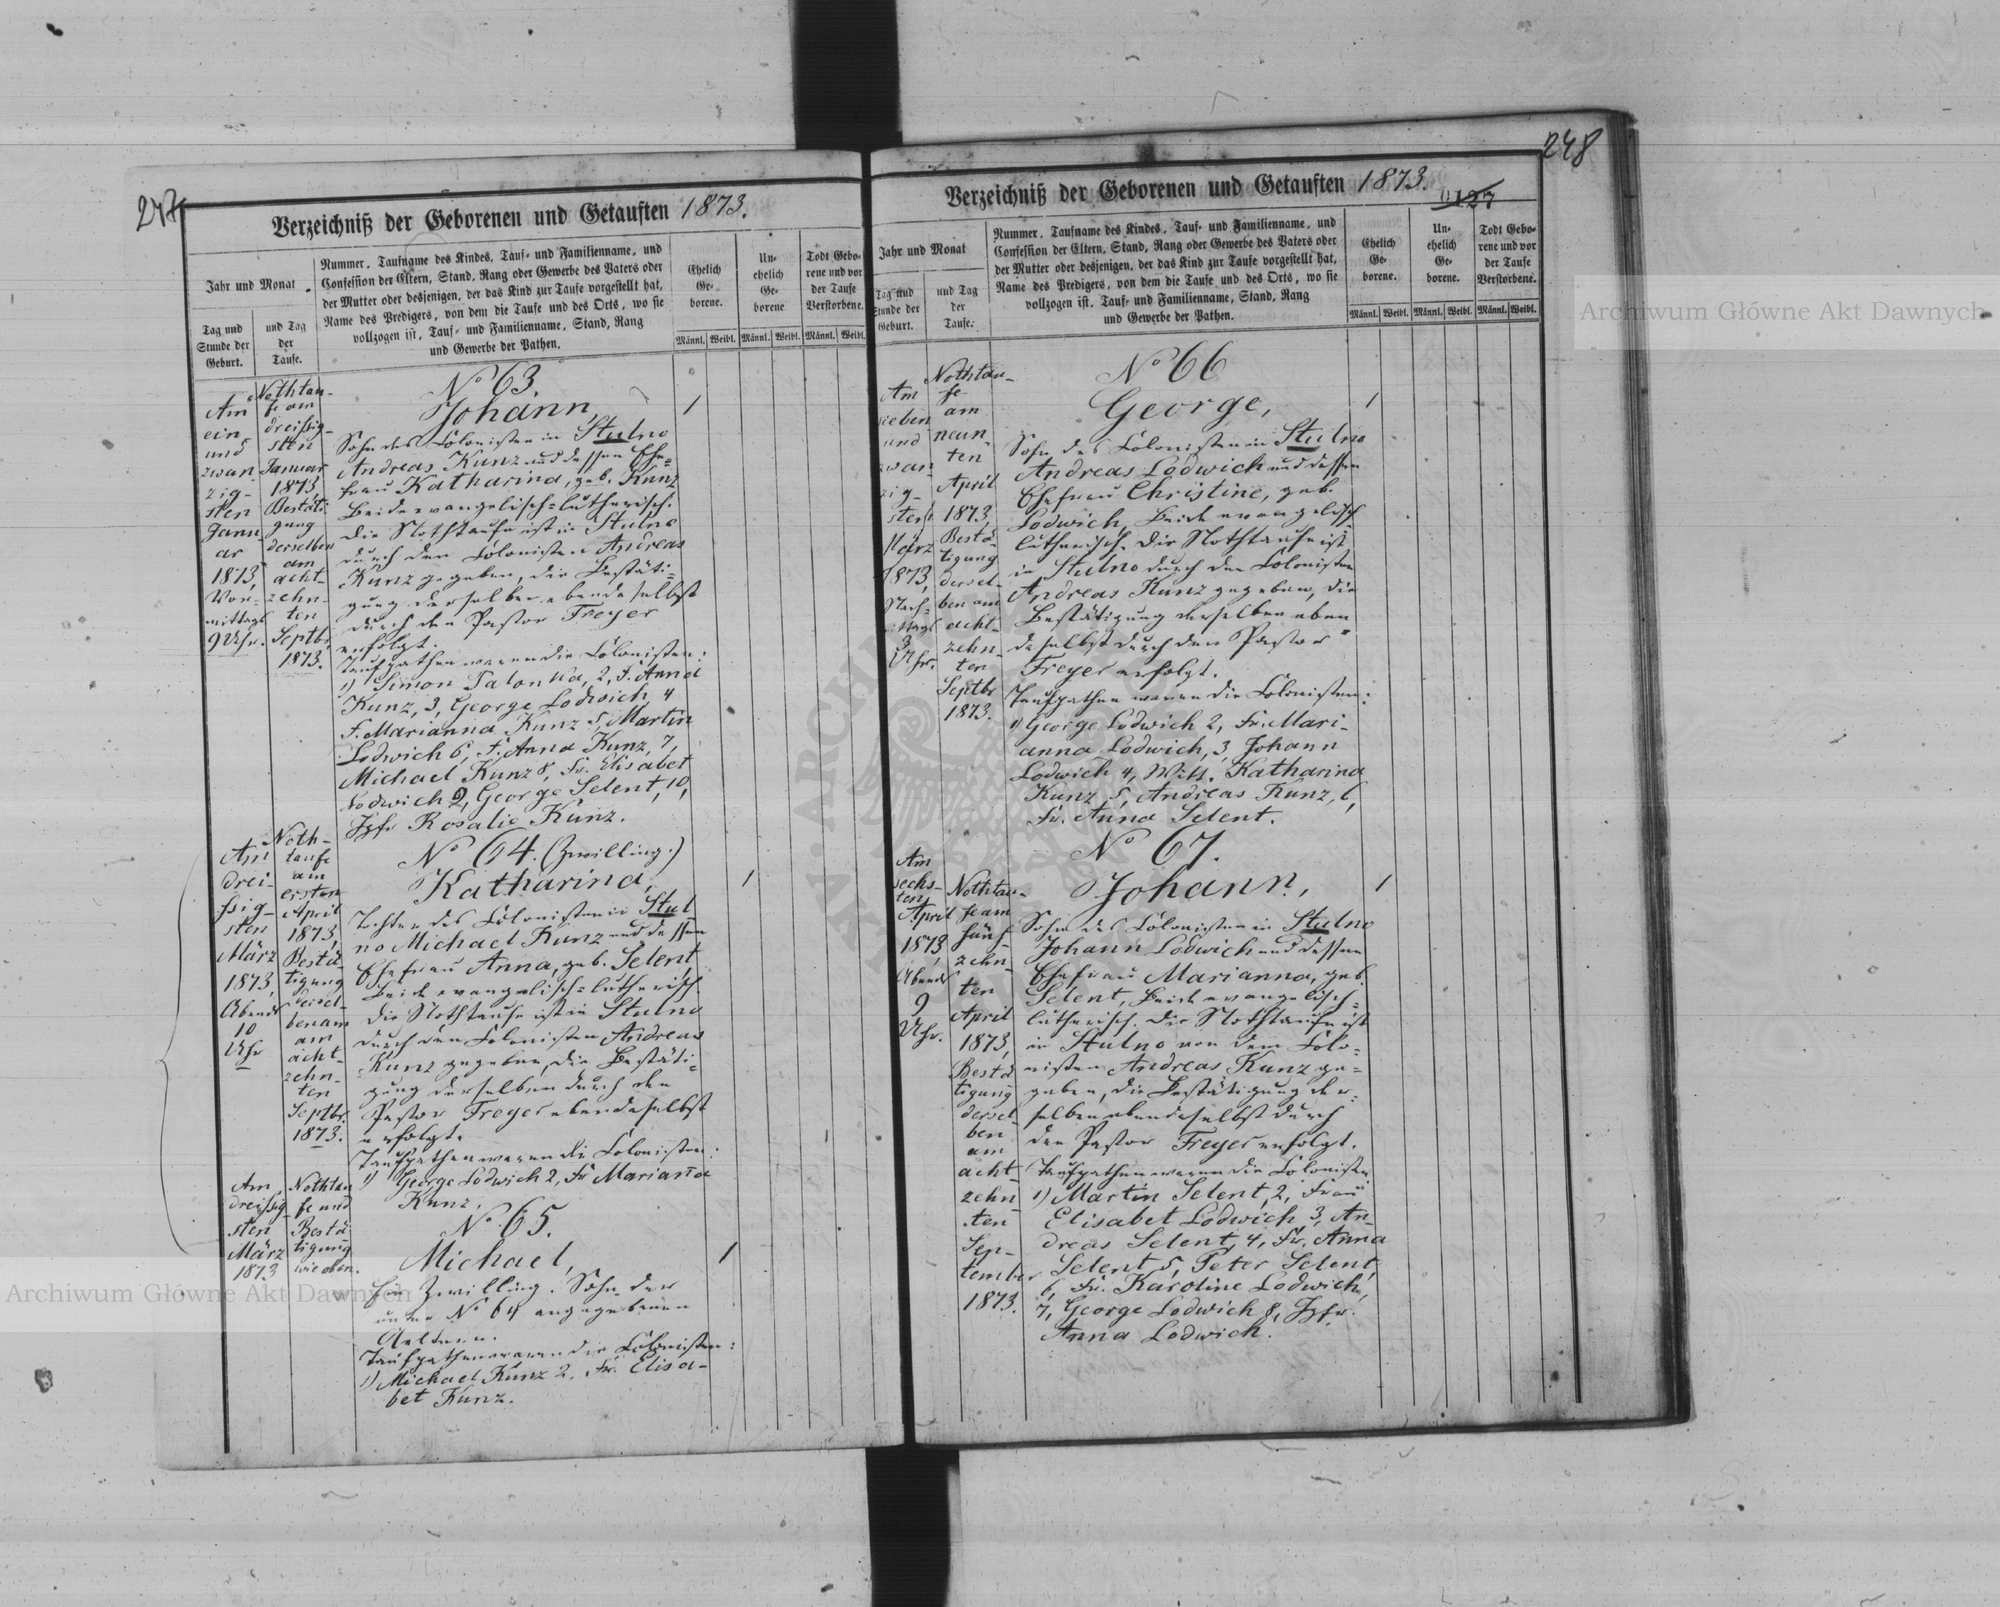 247
Verzeichniß der Geborenen und Getauften 1873.
Jahr und Monat
Tag und
Stunde der
Geburt.
und Tag
der
Taufe.
Nummer, Taufname des Kindes, Tauf- und Familienname, und
Confession der Eltern, Stand, Rang oder Gewerbe des Vaters oder
der Mutter oder desjenigen, der das Kind zur Taufe vorgestellt hat,
Name des Predigers, von dem die Taufe und des Orts, wo sie
vollzogen ist, Tauf- und Familienname, Stand, Rang
und Gewerbe der Pathen.
Ehelich
Ge-
borene.
Un-
ehelich
Ge-
borene
Todt Gebo-
rene und vor
der Taufe
Verstorbene.
Männl. Weibl. Männl. Weibl. Männl. Weibl.
Am
ein
und
zwan
zig-
sten
Janu
ar
1873,
Vor-
mittags
9 Uhr.
Nothtau-
fe am
dreißig-
sten
Januar
1873
Bestäti
gung
derselben
am
acht-
zehn-
ten
Septbr
1873.
No 63.
Johann,
Sohn des Colonisten in Stulno
Andreas Kunz und dessen Ehe-
frau Katharina, geb. Kunz
Beide evangelisch-lutherisch.
Die Nothtaufe ist in Stulno
durch den Colonisten Andreas
Kunz gegeben, die Bestäti-
gung derselben ebendaselbst
durch den Pastor Freyer
erfolgt.
Taufpathen waren die Colonisten:
1) Simon Talonka, 2, F. Anna
Kunz, 3, George Lodwich, 4
F. Marianna Kunz 5, Martin
Lodwich 6, F. Anna Kunz, 7,
Michael Kunz 8, Fr. Elisabet
Lodwich 9, George Selent, 10,
Jgfr Rosalie Kunz.
1
Am
drei-
ssig-
sten
März
1873,
Abends
10
Uhr
Noth-
taufe
am
ersten
April
1873,
Bestä-
tigung
dersel-
ben am
am
acht-
zehn-
ten
Septbr.
1873.
No 64. (Zwilling.)
Katharina,
Tochter des Colonisten in Stul
no Michael Kunz und dessen
Ehefrau Anna, geb. Selent
Beide evangelisch-lutherisch
Die Nothtaufe ist in Stulno
durch den Colonisten Andreas
Kunz gegeben, die Bestäti-
gung derselben durch den
Pastor Freyer ebendaselbst
erfolgt.
Taufpathen waren die Colonisten:
1) George Lodwich 2, Fr Marianna
Kunz.
1
Am
dreißig-
sten
März
1873
Nothtau
fe und
Bestä
tigung
wie oben.
No 65.
Michael,
Ein Zwilling. Sohn der
unter No 64 angegebenen
Aeltern.
Taufpathen waren die Colonisten:
1) Michael Kunz 2, Fr. Elisa-
bet Kunz.
1
248
Verzeichniß der Geborenen und Getauften 1873.
127
Jahr und Monat
Tag und
Stunde der
Geburt.
und Tag
der
Taufe.
Nummer, Taufname des Kindes, Tauf- und Familienname, und
Confession der Eltern, Stand, Rang oder Gewerbe des Vaters oder
der Mutter oder desjenigen, der das Kind zur Taufe vorgestellt hat,
Name des Predigers, von dem die Taufe und des Orts, wo sie
vollzogen ist, Tauf- und Familienname, Stand, Rang
und Gewerbe der Pathen.
Ehelich
Ge-
borene.
Un-
ehelich
Ge-
borene.
Todt Gebo-
rene und vor
der Taufe
Verstorbene.
Männl. Weibl. Männl. Weibl. Männl. Weibl.
Am
sieben
und
zwan
zig-
sten
März
1873,
Nach-
mittags
3
Uhr.
Nothtau-
fe
am
neun-
ten
April
1873,
Bestä-
tigung
dersel-
ben am
acht-
zehn-
ten
Septbr
1873.
No 66
George,
Sohn des Colonisten in Stulno
Andreas Lodwich und dessen
Ehefrau Christine, geb.
Lodwich, Beide evangelisch-
lutherisch. Die Nothtaufe ist
in Stulno durch den Colonisten
Andreas Kunz gegeben, die
Bestätigung derselben eben
daselbst durch den Pastor
Freyer erfolgt.
Taufpathen waren die Colonisten:
1) George Lodwich 2, Fr. Mari-
anna Lodwich, 3, Johann
Lodwich 4, Witt. Katharina
Kunz 5, Andreas Kunz, 6,
Fr. Anna Selent.
1
Am
sechs-
ten
April
1873,
Abends
9
Uhr.
Nothtau-
fe am
fünf-
zehn-
ten
April
1873,
Bestä
tigung
dersel
ben
am
acht-
zehn-
ten
Sep-
tember
1873.
No 67.
Johann,
Sohn des Colonisten in Stulno
Johann Lodwich und dessen
Ehefrau Marianna, geb.
Selent, Beide evangelisch-
lutherisch. Die Nothtaufe ist
in Stulno von dem Colo-
nisten Andreas Kunz ge-
geben, die Bestätigung der-
selben ebendaselbst durch
den Pastor Freyer erfolgt.
Taufpathen waren die Colonisten
1) Martin Selent, 2, Frau
Elisabet Lodwich 3, An-
dreas Selent, 4, Fr. Anna
Selent 5, Peter Selent,
6, Fr. Karoline Lodwich,
7, George Lodwich 8, Jgfr.
Anna Lodwich.
1
Archiwum Główne Akt Dawnych
Archiwum Główne Akt Dawnych